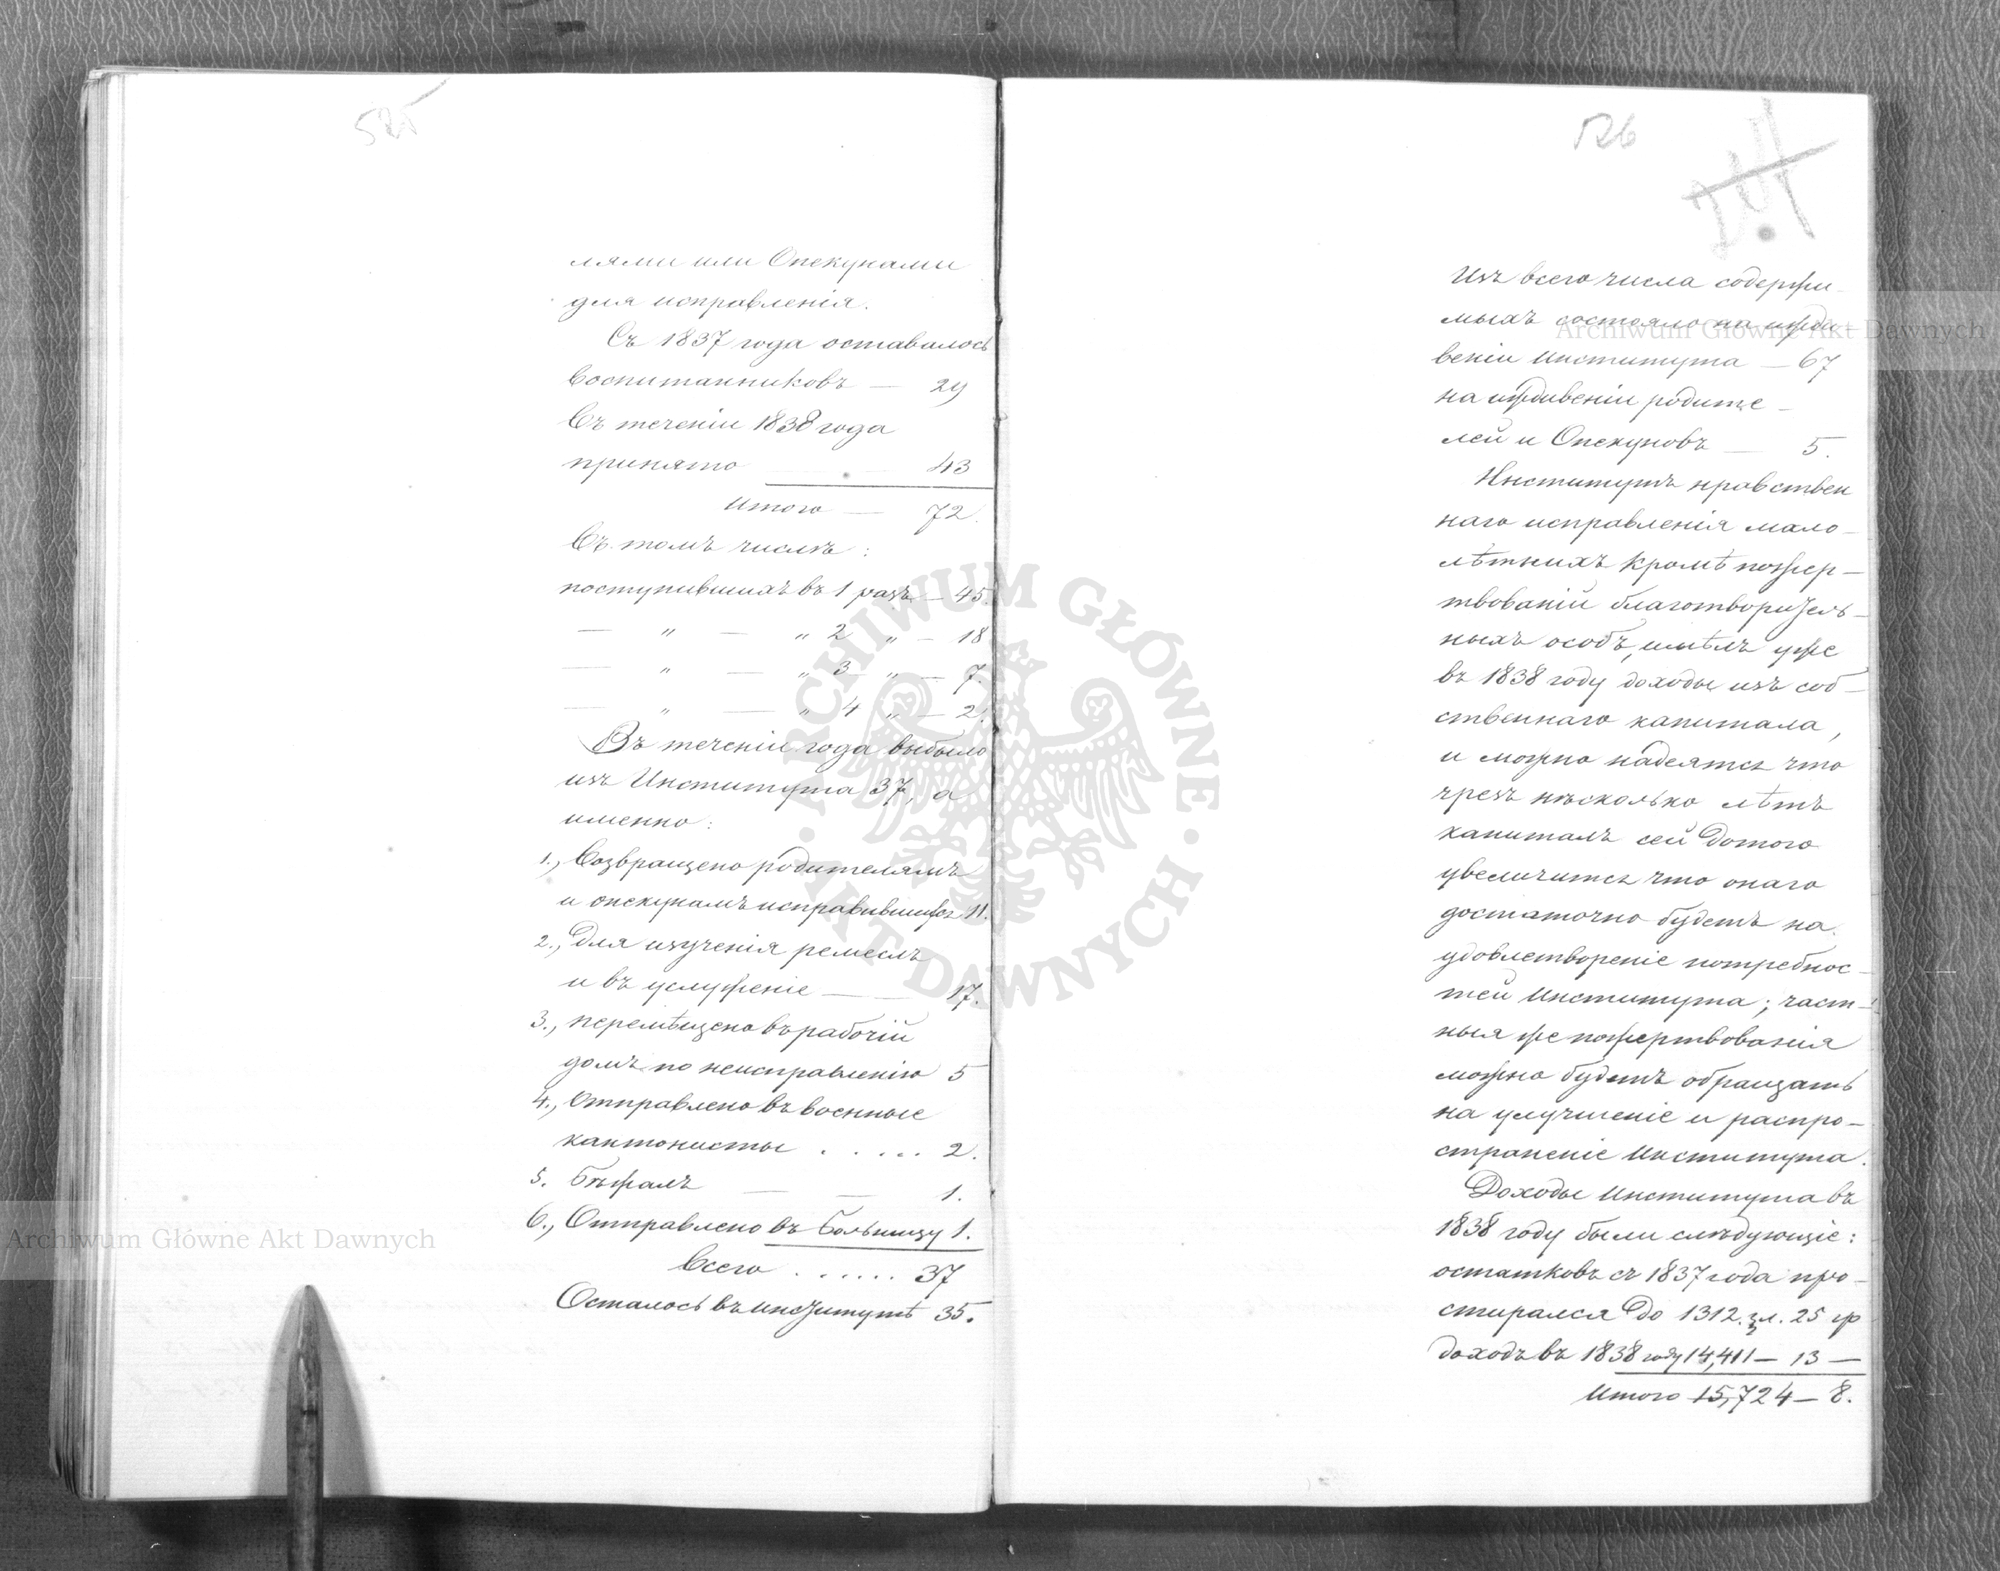 525
лями или Опекунами
для исправленія.
Съ 1837 года оставалось
Воспитанниковъ — 29
Въ теченіи 1838 года
принято — — 43
Итого — 72.
Въ томъ числѣ:
поступившихъ въ 1 разъ — 45.
— „ — „ 2 „ — 18
— „ — „ 3 „ — 7.
— „ — „ 4 „ — 2.
Въ теченіи года выбыло
изъ Института 37, а
именно:
1., Возвращено родителямъ
и опекунамъ исправившихся 11.
2., Для изученія ремеслъ
и въ услуженіе — — 17.
3., перемѣщено въ рабочій
домъ по неисправленію 5
4., Отправлено въ военные
кантонисты . . . . . 2.
5. Бѣжалъ — — 1.
6., Отправлено въ Больницу 1.
Всего . . . . . . 37
Осталось въ институтѣ 35.
526
Изъ всего числа содержи-
мыхъ состояло на ижди-
веніи Института — 67
на иждивеніи родите-
лей и Опекуновъ — 5.
Институтъ нравствен
наго исправленія мало-
лѣтнихъ кромѣ пожер-
твованій благотворитель-
ныхъ особъ, имѣлъ уже
въ 1838 году доходы изъ соб-
ственнаго капитала,
и можно надеятся что
чрезъ нѣсколько лѣтъ
капиталъ сей дотого
увеличится что онаго
достаточно будетъ на
удовлетвореніе потребнос-
тей Института; част-
ныя же пожертвованія
можно будетъ обращать
на улучшеніе и распро-
страненіе Института.
Доходы Института въ
1838 году были слѣдующіе:
остатковъ съ 1837 года про-
стирался до 1312. зл. 25 гр
доходъ въ 1838 году 14,411 — 13 —
Итого 15,724 — 8.
Archiwum Główne Akt Dawnych
Archiwum Główne Akt Dawnych
ARCHIWUM GŁÓWNE · AKT DAWNYCH ·